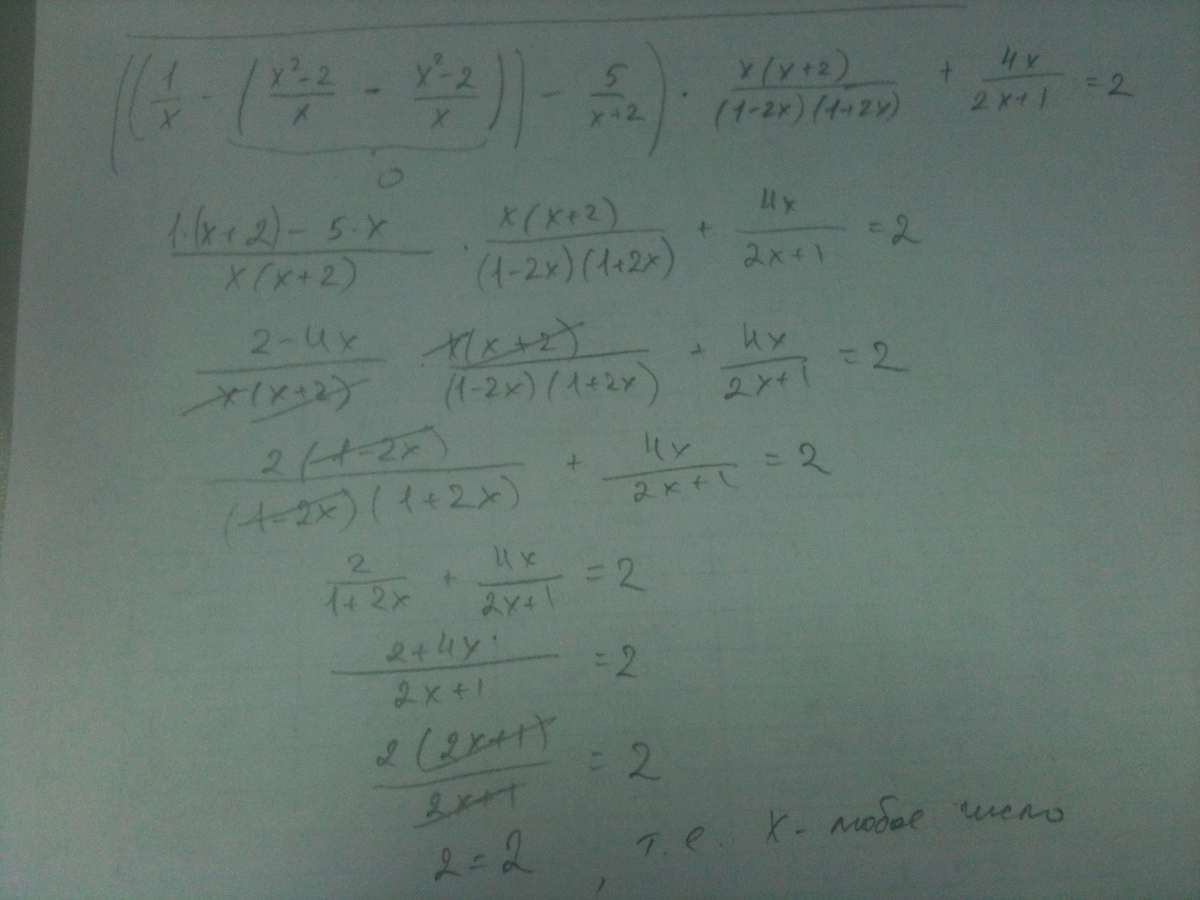 ((1/x - (x²-2/x - x²-2/x)) - 5/x+2) · x(x+2)/(1-2x)(1+2x) + 4x/2x+1 = 2
0
1·(x+2) - 5·x/x(x+2) · x(x+2)/(1-2x)(1+2x) + 4x/2x+1 = 2
2-4x/x(x+2) · x(x+2)/(1-2x)(1+2x) + 4x/2x+1 = 2
2(1-2x)/(1-2x)(1+2x) + 4x/2x+1 = 2
2/1+2x + 4x/2x+1 = 2
2+4x/2x+1 = 2
2(2x+1)/2x+1 = 2
2=2, т.е. x - любое число